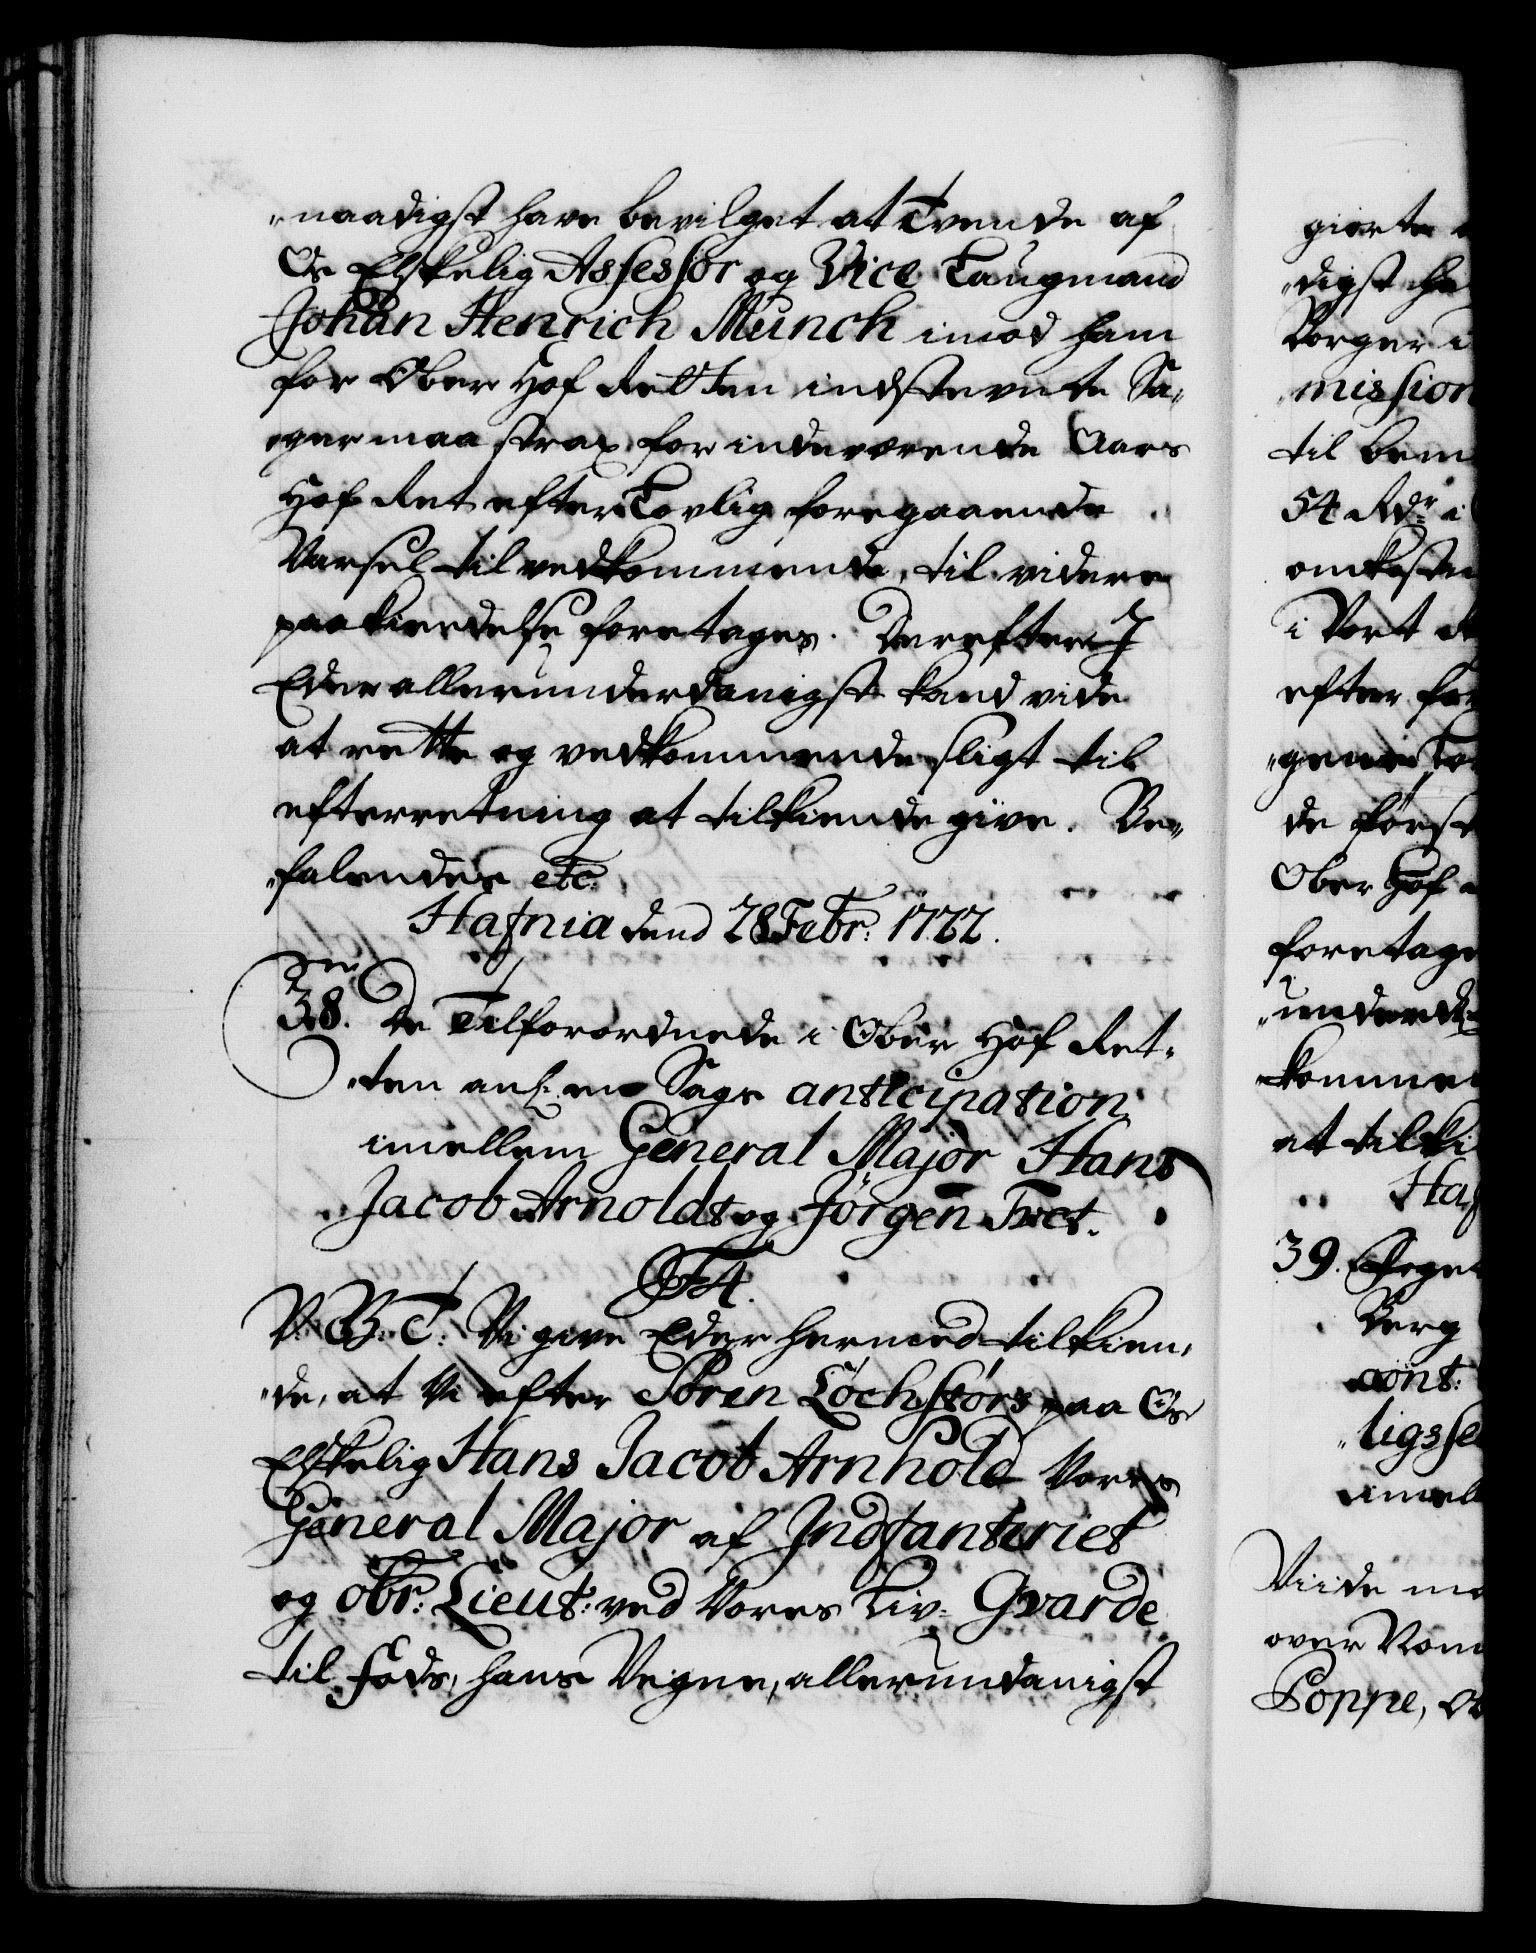 "naadigst have bevilget at tvende af
Os Elskelig Assessor og Vice Laugmand
Johan Henrich Munch imod ham
for Ober Hof Retten indstevnte Sa"
"ger maa strax for indeværende Aars
Hof Ret efter Lovlig foregaaende
Varsel til vedkommende, til videre
paakiendelse foretages. Derefter I
Eder allerunderdanigst kand vide
at rette og vedkommende sligt til
efterretning at tilkiende give. Be"
"falendes etc:
Hafnia dend 28 Febr: 1722.
38. De Tilforordnede i Ober Hof Ret"
"ten anl: en Sags anticipation
imellem General Major Hans
Jacob Arnoldt og Jörgen Tvet.
F4.
V. G. T. Vi give Eder hermed tilkien"
"de, at Vi efter Sören Löchstörs paa Os
Elskelig Hans Jacob Arnhold Vores
General Major af Indfanteriet
og Obr: Lieut: ved Vores Liv-Gvarde
til Fods, hans Vegne, allerundanigst
giorte
"digst ha
Borger i
mission
til bem
54 Rdr i
omkosten
i Vort
efter for
"gende Lov
de först
Ober Hof
foretage
"underd
kommen
at tilki
Haf
39.
Berg
cont:
"ligsse
imel
Vi ide
over Vor
Poppe,